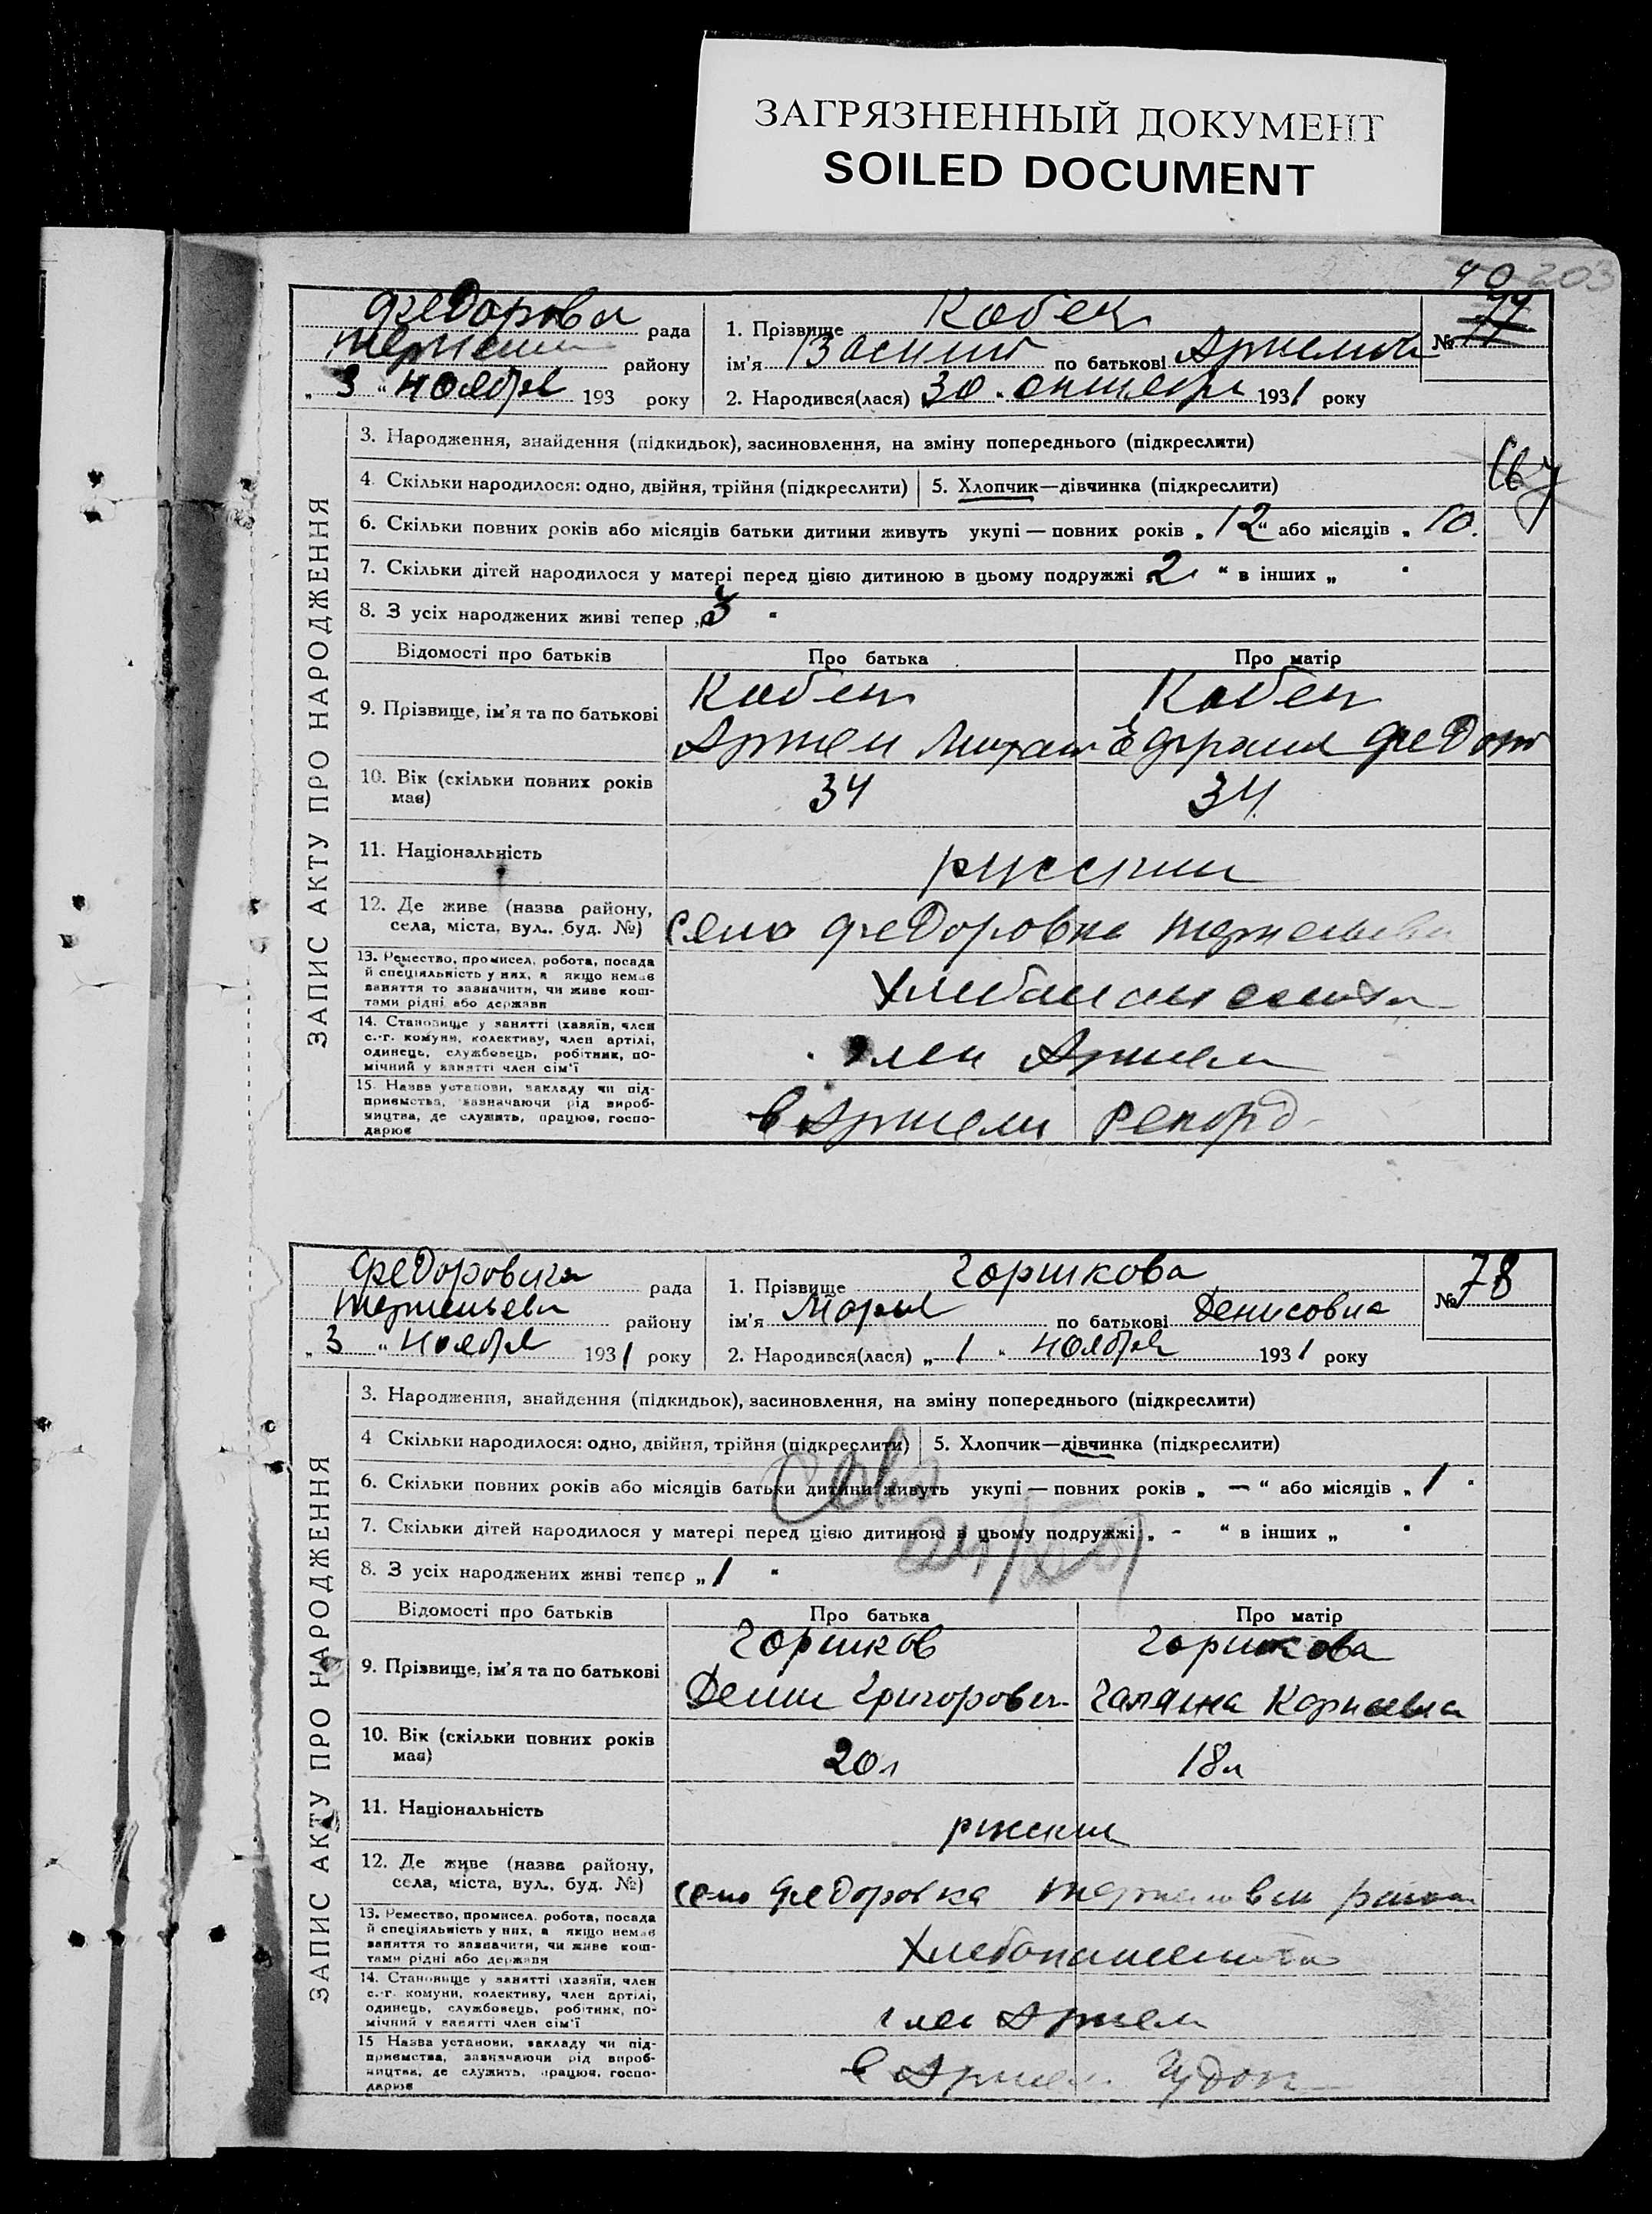 ЗАГРЯЗНЕННЫЙ ДОКУМЕНТ
SOILED DOCUMENT
40 203
Федорова рада
району
„3“ ноября 193 року
1. Прізвище Кобец
№ 77
ім'я Василий по батькові Артемов
2. Народився(лася) 30 октября 1931 року
ЗАПИС АКТУ ПРО НАРОДЖЕННЯ
3. Народження, знайдення (підкидьок), засиновлення, на зміну попереднього (підкреслити)
4. Скільки народилося: одно, двійня, трійня (підкреслити) 5. Хлопчик—дівчинка (підкреслити)
6. Скільки повних років або місяців батьки дитини живуть укупі — повних років „12“ або місяців „10.
7. Скільки дітей народилося у матері перед цією дитиною в цьому подружжі 2 “ в інших „ “
8. З усіх народжених живі тепер „3 “
Відомості про батьків Про батька Про матір
9. Прізвище, ім'я та по батькові
Кобец Кобец
Артем Михаи Федот
10. Вік (скільки повних років має) 34 34
11. Національність русский
12. Де живе (назва району, села, міста, вул., буд. №) село Федоровка
13. Ремество, промисел, робота, посада й спеціяльність у них, а якщо немає заняття то зазначити, чи живе коштами рідні або держави
14. Становище у занятті (хазяїн, член с.-г. комуни, колективу, член артілі, одинець, службовець, робітник, помічний у занятті член сім'ї член Артели
15. Назва установи, закладу чи підприємства, зазначаючи рід виробництва, де служить, працює, господарює в Артели Рекорд
Федоровка рада
району
„3“ ноября 1931 року
1. Прізвище Горшкова
№ 78
ім'я Мария по батькові Денисовна
2. Народився(лася) „1“ ноября 1931 року
ЗАПИС АКТУ ПРО НАРОДЖЕННЯ
3. Народження, знайдення (підкидьок), засиновлення, на зміну попереднього (підкреслити)
4 Скільки народилося: одно, двійня, трійня (підкреслити) 5. Хлопчик—дівчинка (підкреслити)
6. Скільки повних років або місяців батьки дитини живуть укупі — повних років „ — “ або місяців „1 “
7. Скільки дітей народилося у матері перед цією дитиною в цьому подружжі „ - “ в інших „ “
8. З усіх народжених живі тепер „1 “
Відомості про батьків Про батька Про матір
9. Прізвище, ім'я та по батькові
Горшков Горшкова
Денис Григорович Галина Корнеевна
10. Вік (скільки повних років має) 20л 18л
11. Національність русский
12. Де живе (назва району, села, міста, вул., буд. №) село Федоровка район
13. Ремество, промисел, робота, посада й спеціяльність у них, а якщо немає заняття то зазначити, чи живе коштами рідні або держави
14. Становище у занятті (хазяїн, член с.-г. комуни, колективу, член артілі, одинець, службовець, робітник, помічний у занятті член сім'ї член Артели
15 Назва установи, закладу чи підприємства, зазначаючи рід виробництва, де служить, працює, господарює в Артели